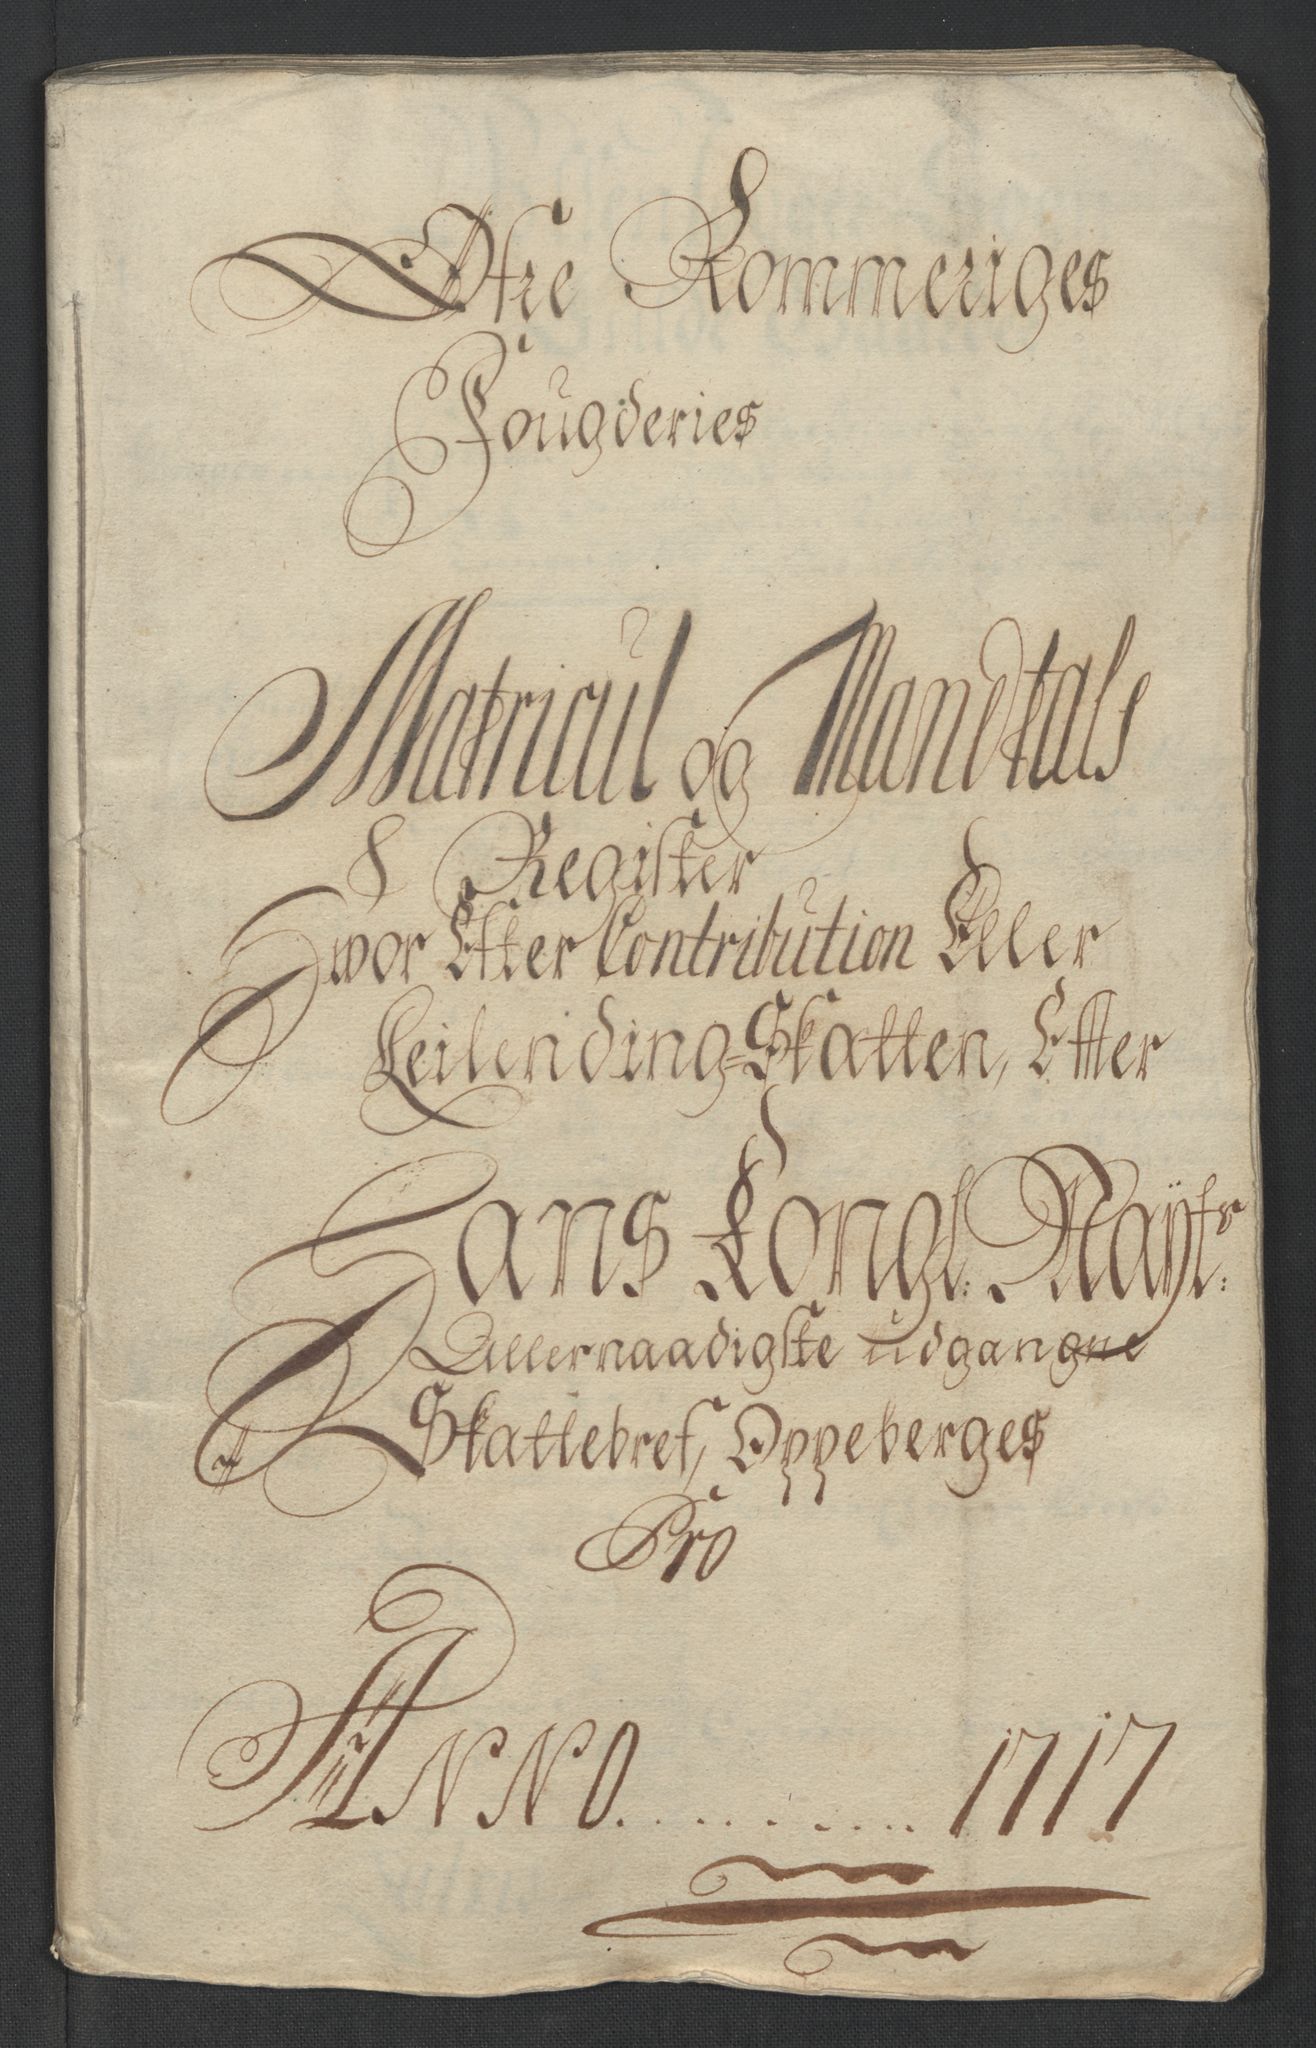 Øfre Rommeriges
Fougderies
Matricul og Mandtals
Register
Hvor Efter Contribution Eller
Leilending-Skatten, Efter
Hans Kongl: Mayts:
Allernaadigste udgangne
Skattebref, Oppeberges
Pro
ANNO.......... 1717